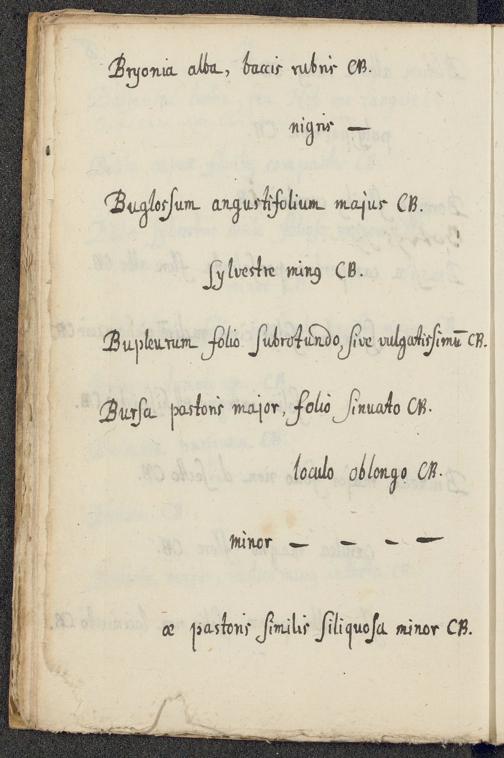 Bryonia alba, baccis rubris CB.
nigris —
Buglossum angustifolium majus CB.
sylvestre minꝰ CB.
Bupleurum folio subrotundo, sive vulgatissimū CB.
Bursa pastoris major, folio sinuato CB.
loculo oblongo CB.
minor — — — —
æ pastoris similis siliquosa minor CB.